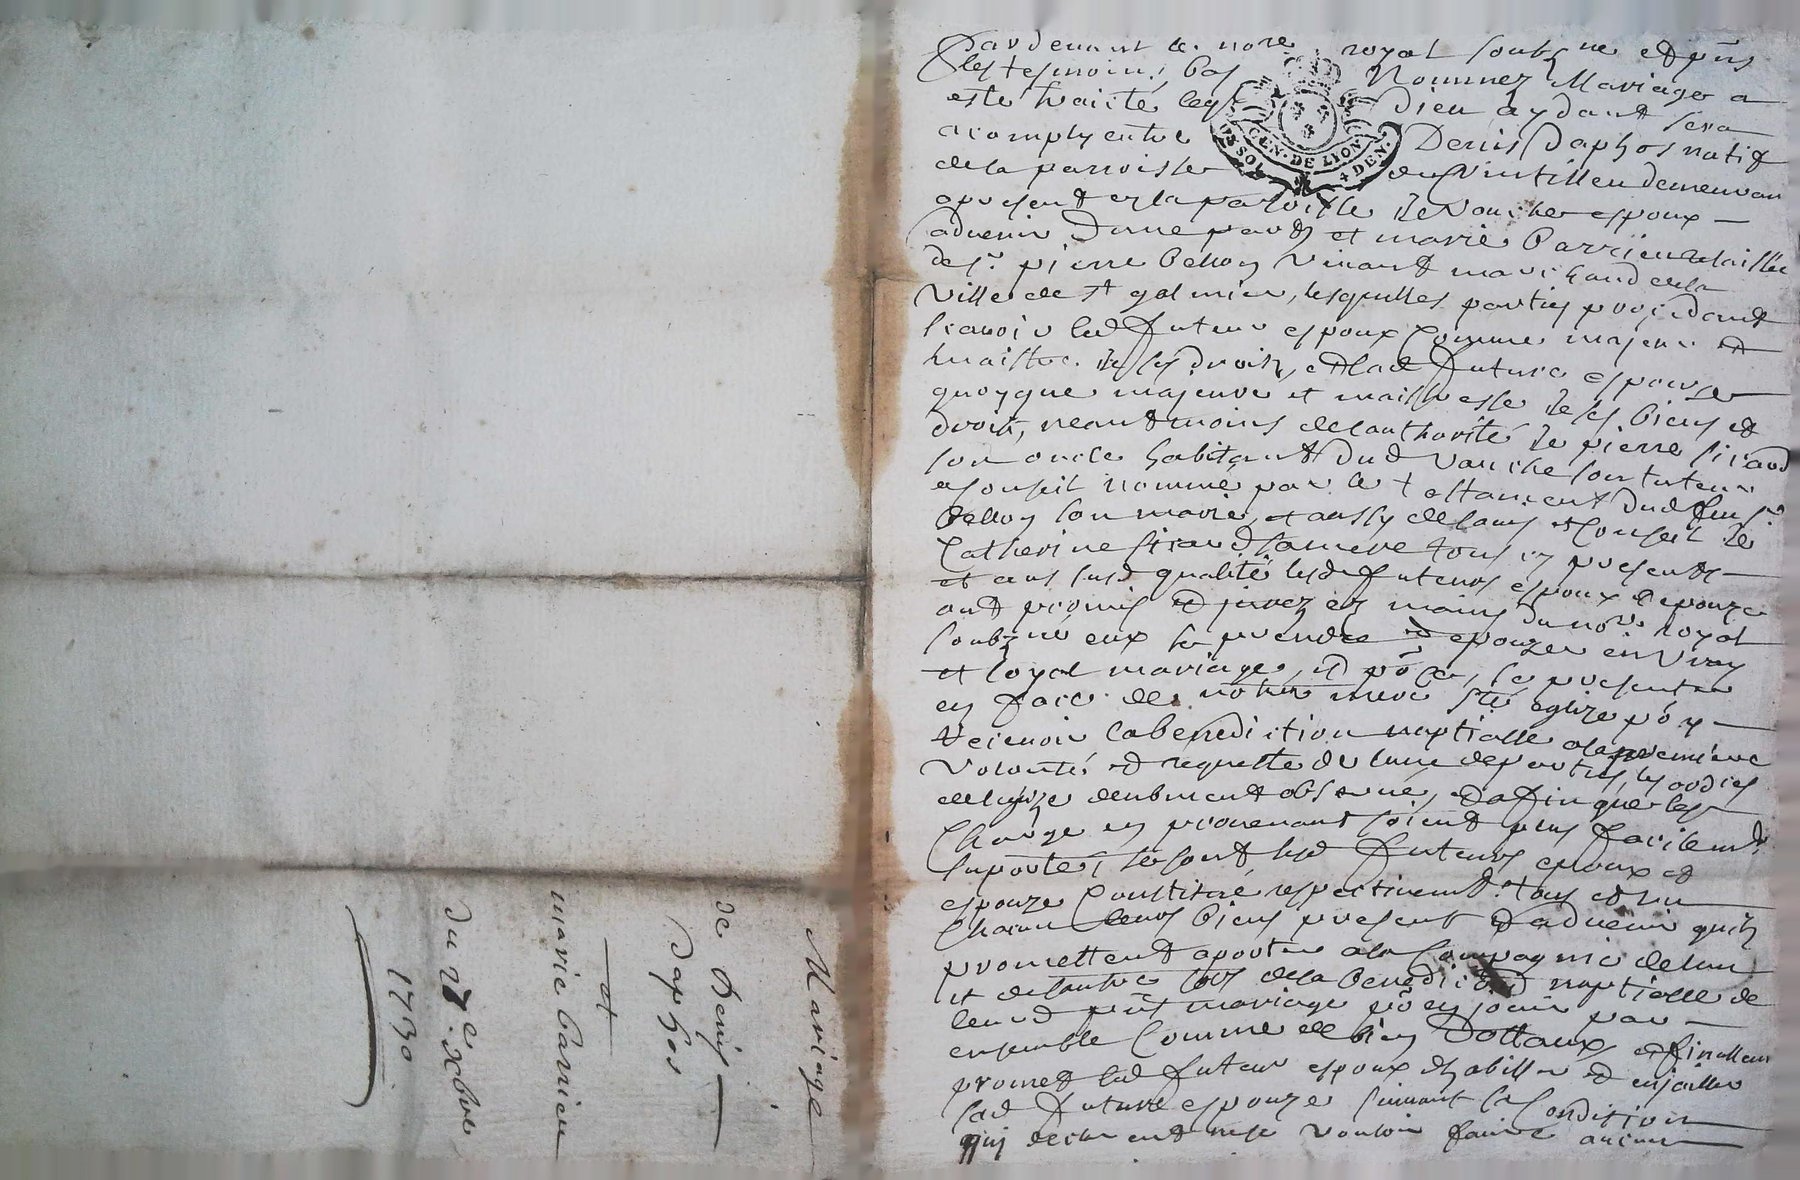 Mariage
de Denis
Daphos
et
marie barrieu
du 27e xbre
1730
Pardevant le nore royal soubsne et pnts
les tesmoins bas Nommez Mariage a
esté traicté leql Dieu aydant sera
acomply entre Denis Daphos natif
de la parroisse de Vintillieu demeurant
a present en la parroisse de Vauche espoux
advenir d'une part et marie barrieu relaissée
de sr pierre bellon vivant marchand de la
Ville de st galmier, lesquelles parties procedant
scavoir led futeur espoux comme majeur et
maistre de ses droits, et lad future espouse
quoyque majeure et maistresse de ses biens et
droits, neantmoins de l'authorité de pierre siraud
son oncle habitant dud Vauche son tuteur
conseil nommé par le testament dud feu sr
bellon son mary, et aussy de l'avis et conseil de
Catherine siraud sa mere tous icy presents
et aux susd qualités lesd futeurs espoux et epouze
ont promis et jurez es mains du nore royal
soubzné eux se prendre et epouzer en vray
et loyal mariage, et po ce, se presenter
en face de notre mere ste eglize po y
recevoir la benediction nuptialle a la premiere
volonté et requette de l'une des parties, les ordres
de l'eglize deubment observé, et affin que les
Charges en provenant soient plus facilemt
suportés, se sont lesd futeurs epoux et
espouze constitué respectivemt tous et un
Chacun leurs biens present et advenir quils
promettent aporter a la Compagnie de l'un
et de l'autre lors de la benediction nuptialle de
leurd pnt mariage po en jouir par
ensemble comme de bien Dottaux, et finallemt
promet led futeur espoux d'habiller et enjoailler
lad future espouze suivant sa Condition
qui declarent ne vouloir faire aucune
GEN. DE LION
4 DEN.